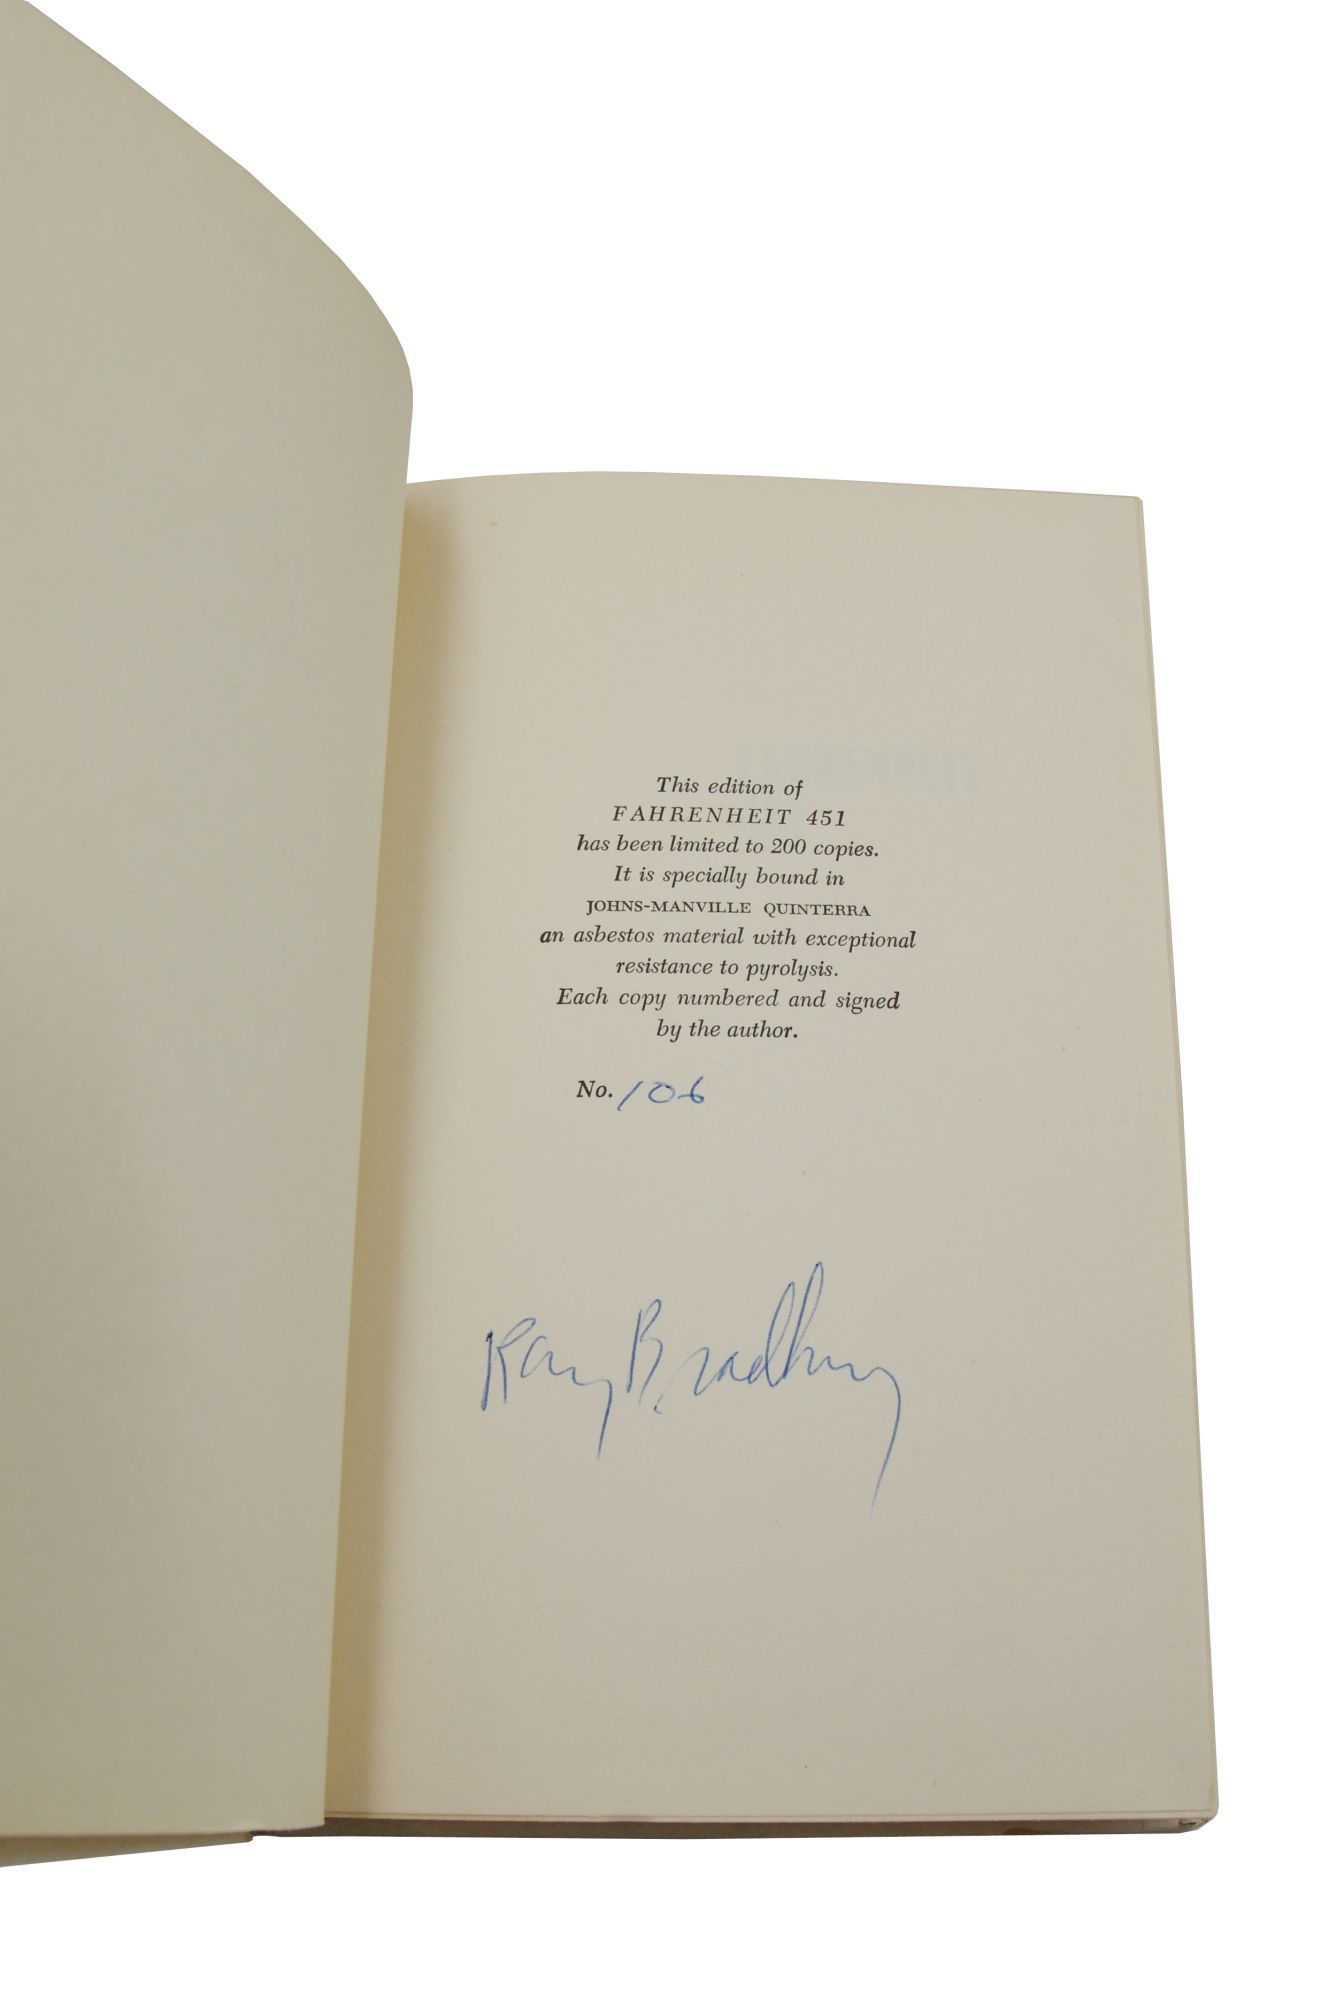 This edition of
FAHRENHEIT 451
has been limited to 200 copies.
It is specially bound in
JOHNS-MANVILLE QUINTERRA
an asbestos material with exceptional
resistance to pyrolysis.
Each copy numbered and signed
by the author.
No. 106
Ray Bradbury